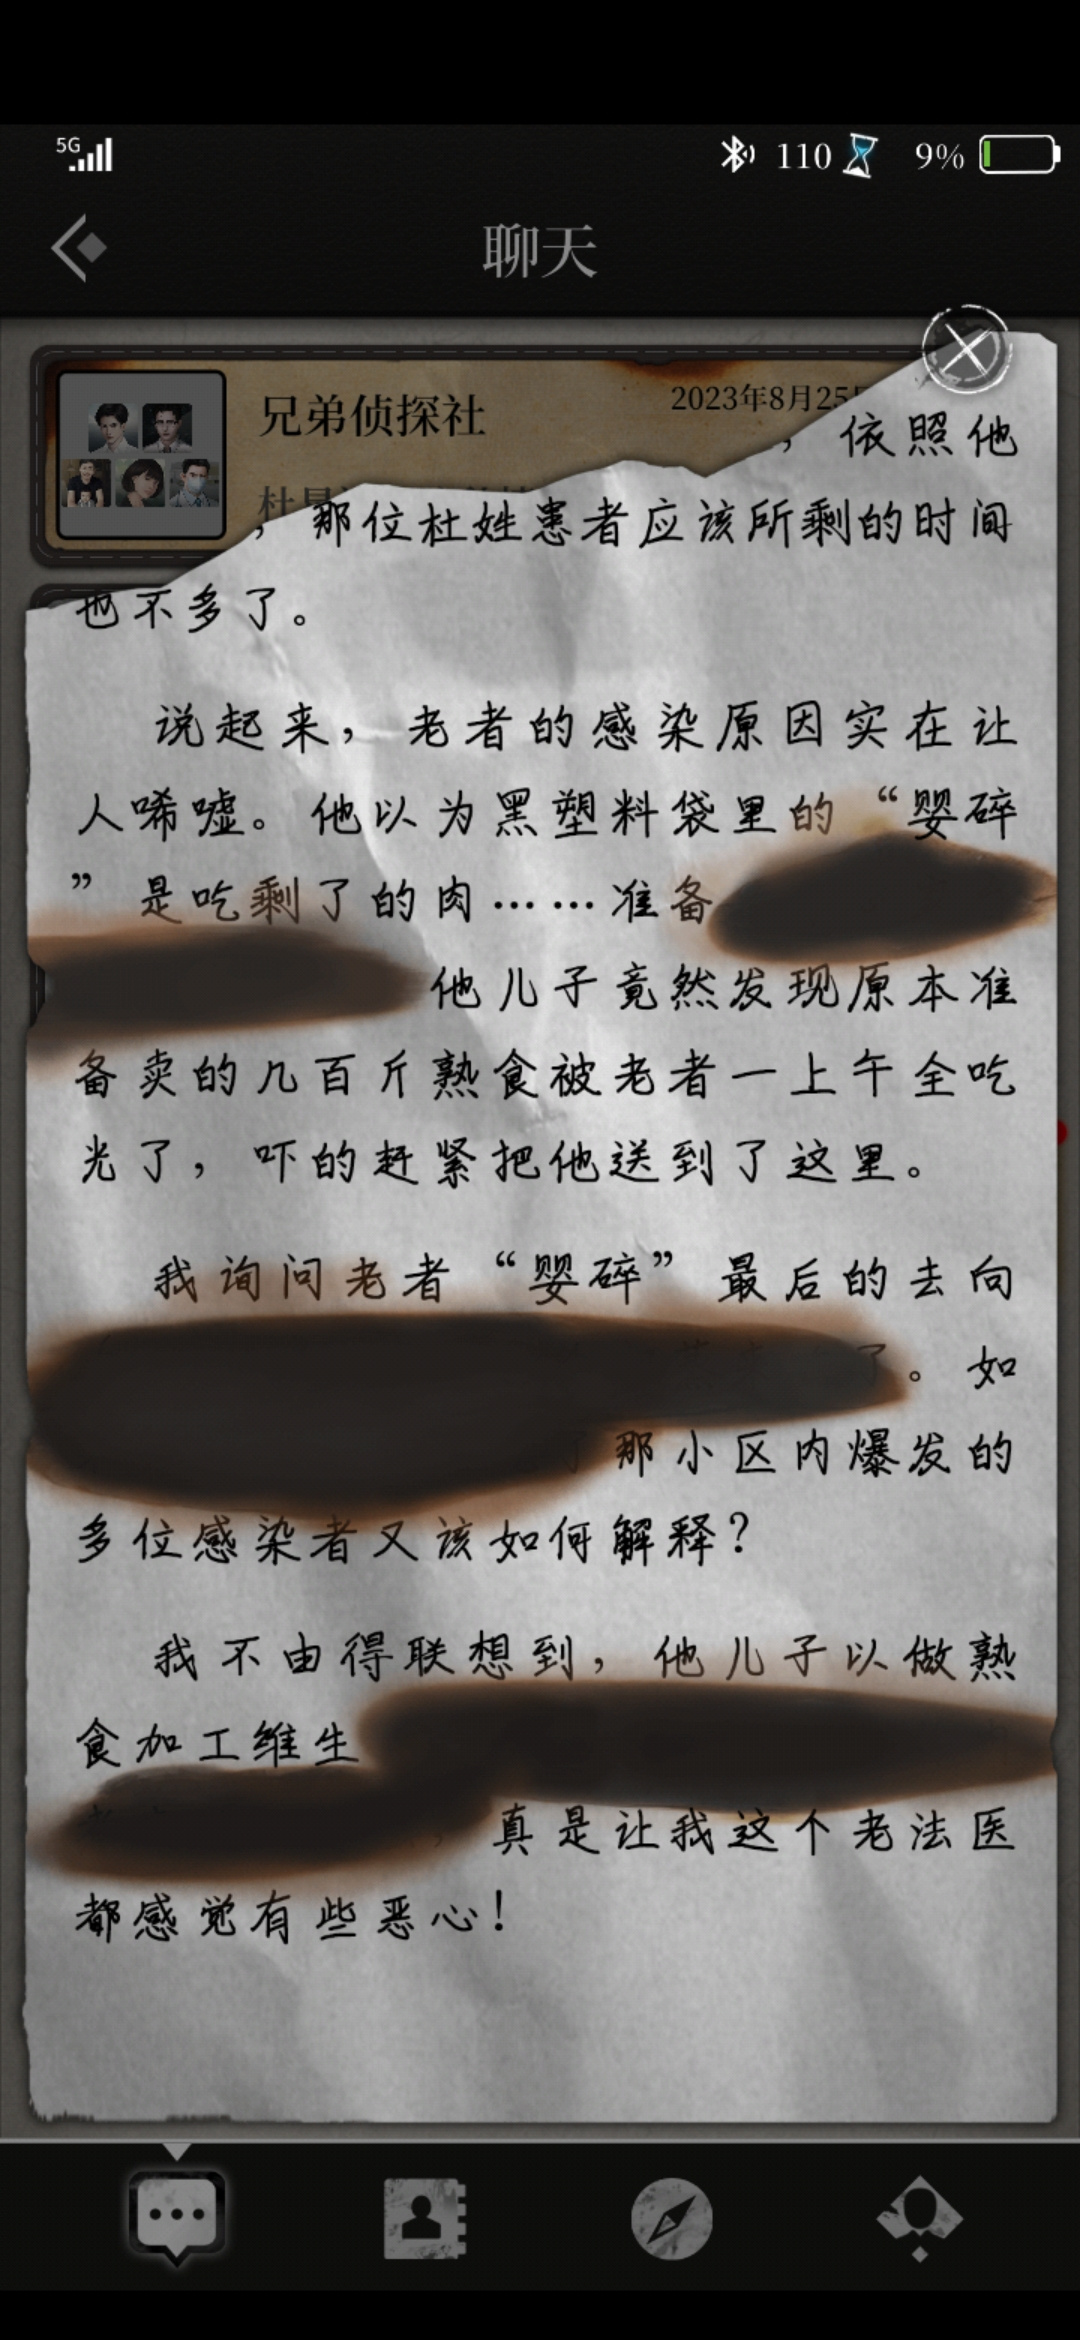 5G
110
9%
聊天
兄弟侦探社
2023年8月25
，依照他
，那位杜姓患者应该所剩的时间
也不多了。
说起来，老者的感染原因实在让
人唏嘘。他以为黑塑料袋里的“婴碎
”是吃剩了的肉……准备
他儿子竟然发现原本准
备卖的几百斤熟食被老者一上午全吃
光了，吓的赶紧把他送到了这里。
我询问老者“婴碎”最后的去向
了。如
了那小区内爆发的
多位感染者又该如何解释？
我不由得联想到，他儿子以做熟
食加工维生
，真是让我这个老法医
都感觉有些恶心！